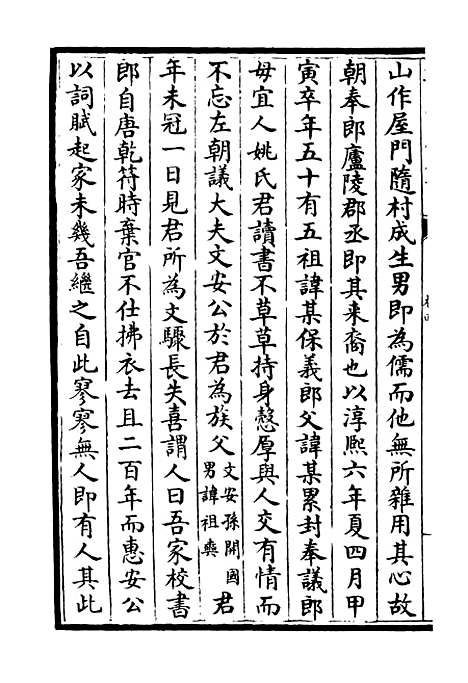 山作屋門隨村成生男即為儒而他無所雜用其心故
朝奉郎廬陵郡丞即其来裔也以淳熙六年夏四月甲
寅卒年五十有五祖諱某保義郎父諱某累封奉議郎
母宜人姚氏君讀書不草草持身慤厚與人交有情而
不忘左朝議大夫文安公於君為族父文安孫開國男諱祖奭君
年未冠一日見君所為文驟長失喜謂人曰吾家校書
郎自唐乾符時棄官不仕拂衣去且二百年而惠安公
以詞賦起家未幾吾繼之自此寥寥無人即有人其此